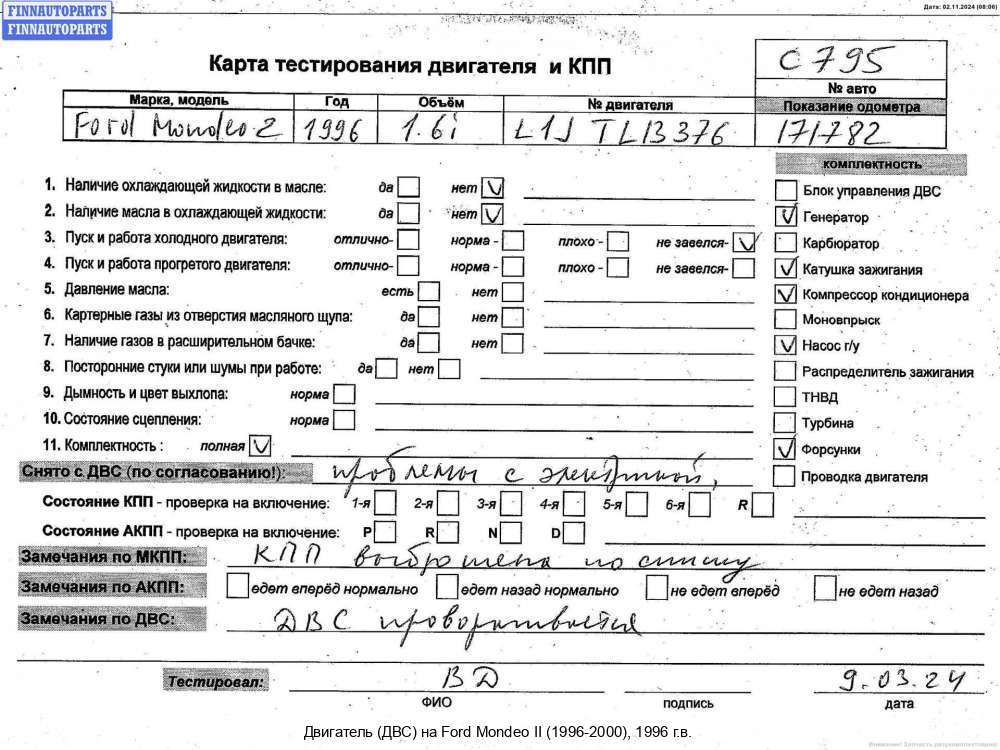 FINNAUTOPARTS
FINNAUTOPARTS
Дата: 02.11.2024 (08:06)
Карта тестирования двигателя и КПП
С 795
№ авто
Марка, модель Год Объём № двигателя Показание одометра
Ford Mondeo 2 1996 1.6i L1J TL13376 171782
комплектность
1. Наличие охлаждающей жидкости в масле: да нет V Блок управления ДВС
2. Наличие масла в охлаждающей жидкости: да нет V V Генератор
3. Пуск и работа холодного двигателя: отлично- норма - плохо - не завелся- V Карбюратор
4. Пуск и работа прогретого двигателя: отлично- норма - плохо - не завелся- V Катушка зажигания
5. Давление масла: есть нет V Компрессор кондиционера
6. Картерные газы из отверстия масляного щупа: да нет Моновпрыск
7. Наличие газов в расширительном бачке: да нет V Насос г/у
8. Посторонние стуки или шумы при работе: да нет Распределитель зажигания
9. Дымность и цвет выхлопа: норма ТНВД
10. Состояние сцепления: норма Турбина
11. Комплектность : полная V V Форсунки
Снято с ДВС (по согласованию!): проблемы с электрикой, Проводка двигателя
Состояние КПП - проверка на включение: 1-я 2-я 3-я 4-я 5-я 6-я R
Состояние АКПП - проверка на включение: P R N D
Замечания по МКПП: КПП выброшена по списку
Замечания по АКПП: едет вперёд нормально едет назад нормально не едет вперёд не едет назад
Замечания по ДВС: ДВС проворачивается
Тестировал: ВД 9.03.24
ФИО подпись дата
Двигатель (ДВС) на Ford Mondeo II (1996-2000), 1996 г.в.